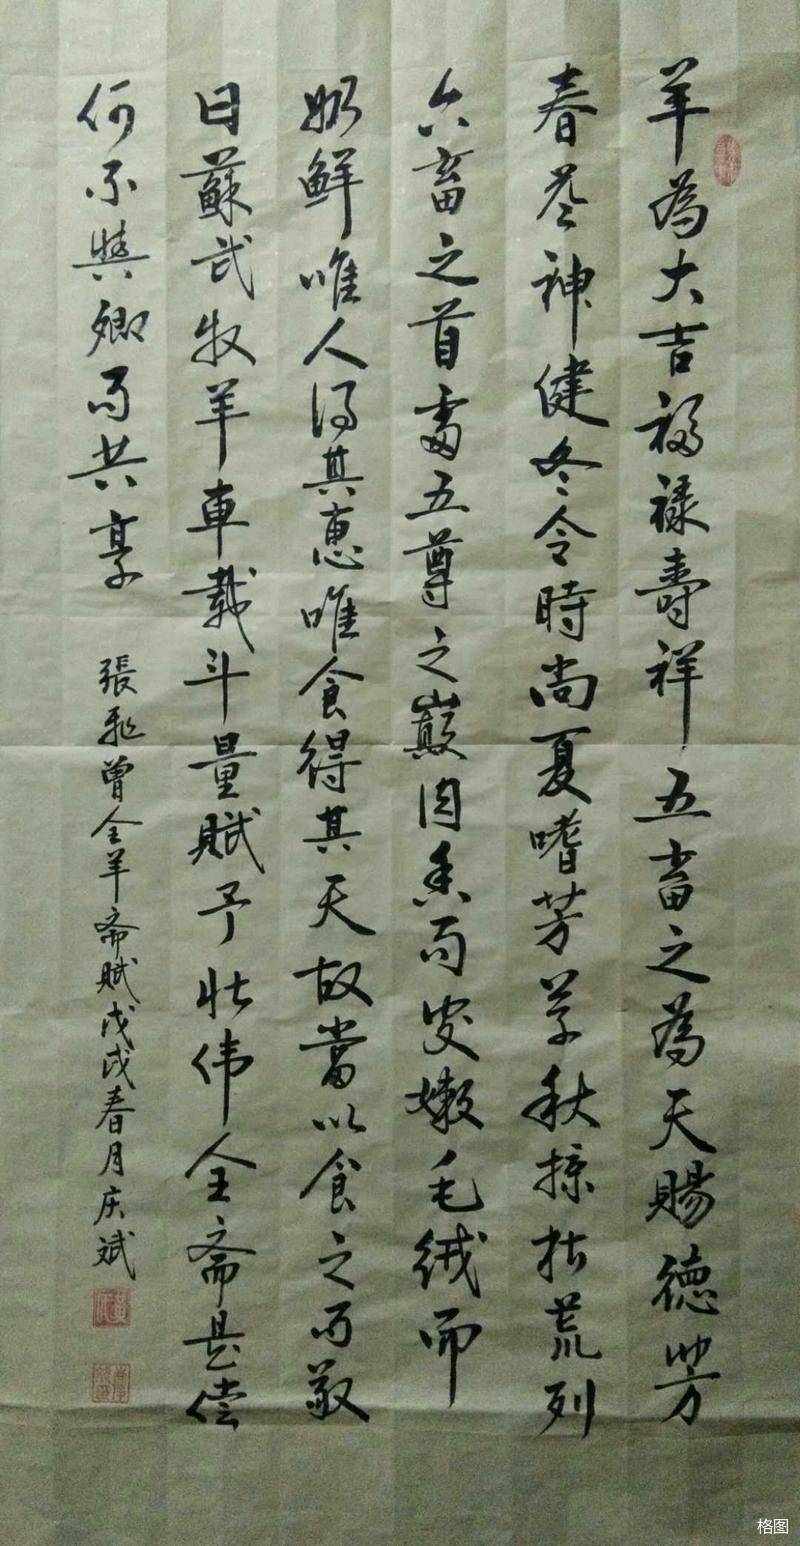 羊為大吉福禄壽祥五畜之為天賜德芳
春苍神健冬令時尚夏嗜芳草秋掠枯荒列
六畜之首富五尊之巔肉香而安嫩毛绒而
奶鲜唯人得其惠唯食得其天故當以食之而敬
日蘇武牧羊車载斗量賦予壯伟全斋是偿
何不與卿而共享
張耴曾全羊斋賦戊戌春月庆斌
格图